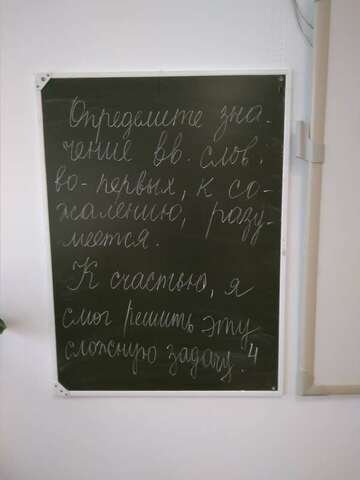 Определите зна-
чение вв. слов.
во-первых, к со-
жалению, разу-
меется.
К счастью, я
смог решить эту
сложную задачу. 4